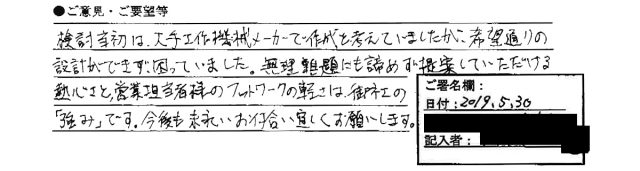 ●ご意見・ご要望等
検討当初は、大手工作機械メーカーで作成を考えていましたが、希望通りの
設計ができず、困っていました。無理難題にも諦めず提案していただける
熱心さと、営業担当者様のフットワークの軽さは、御社の
「強み」です。今後も末永いお付合い宜しくお願いします。
ご署名欄：
日付：2019.5.30
記入者：